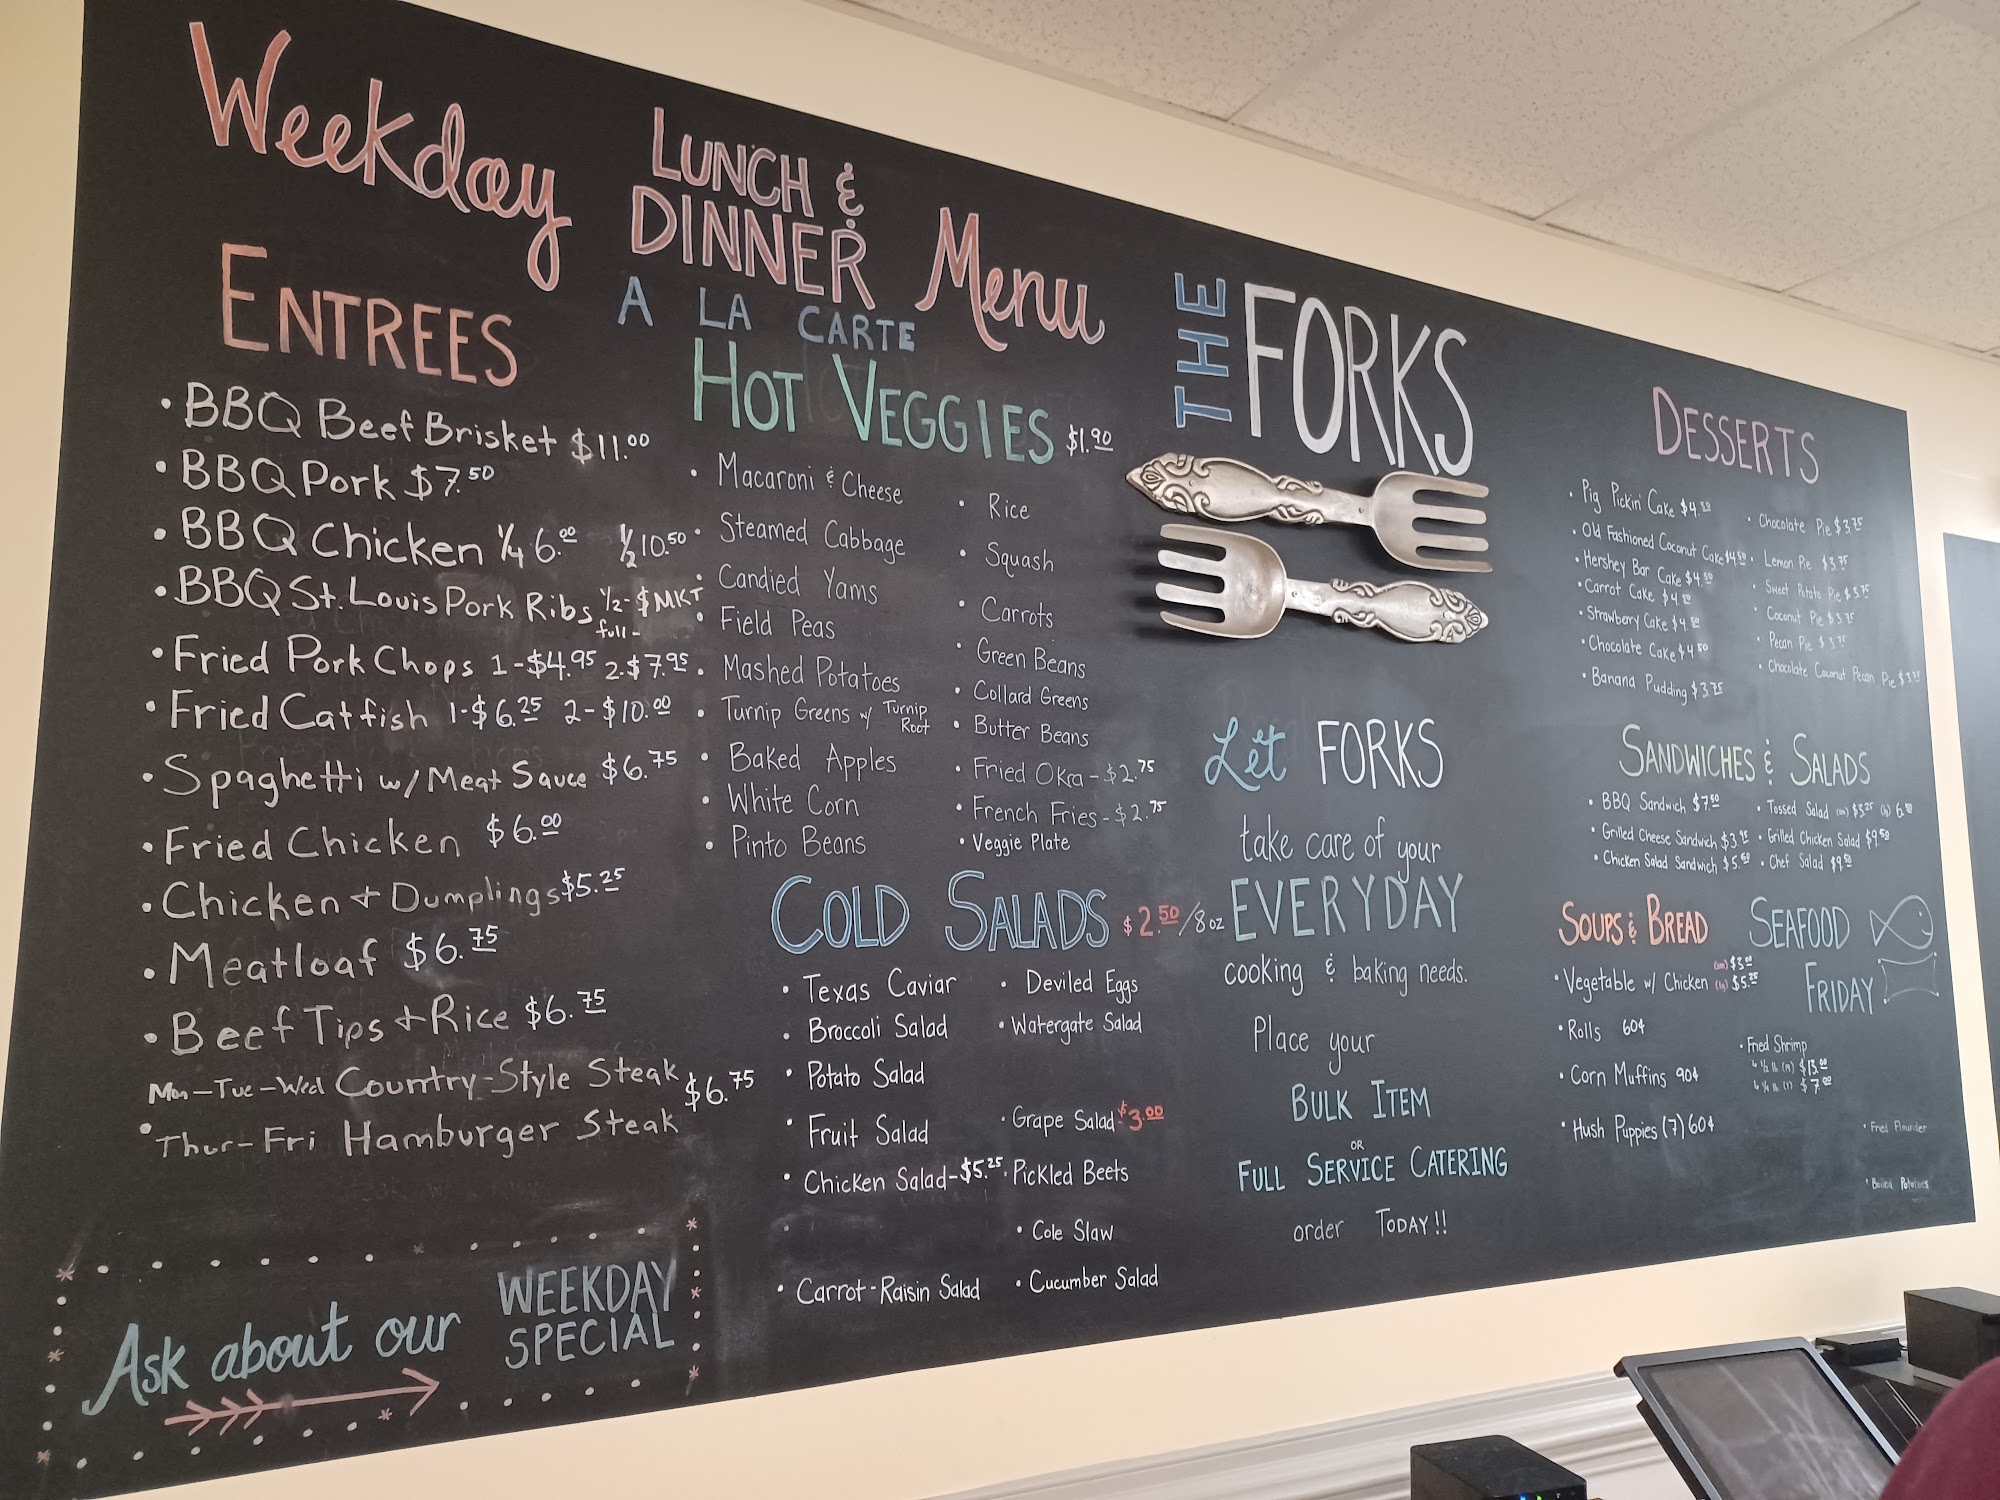 Weekday LUNCH & DINNER Menu
A LA CARTE
ENTREES
• BBQ Beef Brisket $11.00
• BBQ Pork $7.50
• BBQ Chicken 1/4 6.00 1/2 10.50
• BBQ St. Louis Pork Ribs 1/2- $MKT
full-
• Fried Pork Chops 1-$4.95 2-$7.95
• Fried Catfish 1-$6.25 2-$10.00
• Spaghetti w/ Meat Sauce $6.75
• Fried Chicken $6.00
• Chicken + Dumplings $5.25
• Meatloaf $6.75
• Beef Tips + Rice $6.75
Mon-Tue-Wed Country-Style Steak $6.75
• Thur-Fri Hamburger Steak
Ask about our WEEKDAY SPECIAL
HOT VEGGIES $1.90
• Macaroni & Cheese
• Steamed Cabbage
• Candied Yams
• Field Peas
• Mashed Potatoes
• Turnip Greens w/ Turnip Root
• Baked Apples
• White Corn
• Pinto Beans
• Rice
• Squash
• Carrots
• Green Beans
• Collard Greens
• Butter Beans
• Fried Okra - $2.75
• French Fries - $2.75
• Veggie Plate
COLD SALADS $2.50/8oz
• Texas Caviar
• Broccoli Salad
• Potato Salad
• Fruit Salad
• Chicken Salad - $5.25
• Carrot-Raisin Salad
• Deviled Eggs
• Watergate Salad
• Grape Salad - $3.00
• Pickled Beets
• Cole Slaw
• Cucumber Salad
THE FORKS
Let FORKS
take care of your
EVERYDAY
cooking & baking needs.
Place your
BULK ITEM
OR
FULL SERVICE CATERING
order TODAY!!
DESSERTS
• Pig Pickin' Cake $4.50
• Old Fashioned Coconut Cake $4.50
• Hershey Bar Cake $4.50
• Carrot Cake $4.50
• Strawberry Cake $4.50
• Chocolate Cake $4.50
• Banana Pudding $3.75
• Chocolate Pie $3.75
• Lemon Pie $3.75
• Sweet Potato Pie $3.75
• Coconut Pie $3.75
• Pecan Pie $3.75
• Chocolate Coconut Pecan Pie $3.75
SANDWICHES & SALADS
• BBQ Sandwich $7.50
• Grilled Cheese Sandwich $3.95
• Chicken Salad Sandwich $5.50
• Tossed Salad (sm) $3.25 (lg) 6.50
• Grilled Chicken Salad $9.50
• Chef Salad $9.50
SOUPS & BREAD
• Vegetable w/ Chicken (sm) $3.00 (lg) $5.25
• Rolls 60¢
• Corn Muffins 90¢
• Hush Puppies (7) 60¢
SEAFOOD
FRIDAY
• Fried Shrimp
1/2 lb $13.00
1/4 lb $7.00
• Fried Flounder
• Boiled Potatoes